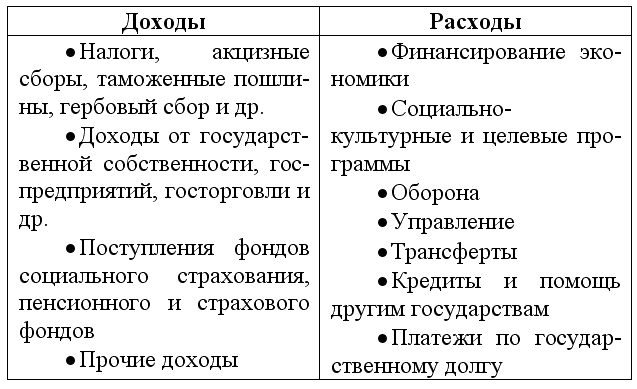 Доходы
• Налоги, акцизные
сборы, таможенные пошли-
ны, гербовый сбор и др.
• Доходы от государст-
венной собственности, гос-
предприятий, госторговли и
др.
• Поступления фондов
социального страхования,
пенсионного и страхового
фондов
• Прочие доходы
Расходы
• Финансирование эко-
номики
• Социально-
культурные и целевые про-
граммы
• Оборона
• Управление
• Трансферты
• Кредиты и помощь
другим государствам
• Платежи по государ-
ственному долгу